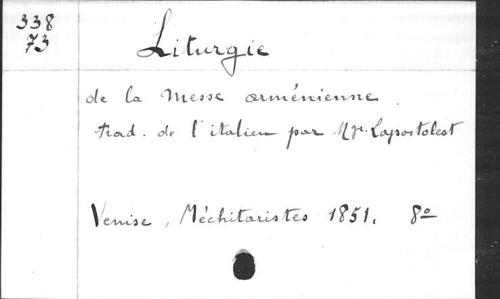 338
73
Liturgie
de la Messe arménienne.
trad. de l'italien par Mgr. Lapostolest
Venise, Méchitaristes 1851. 8º